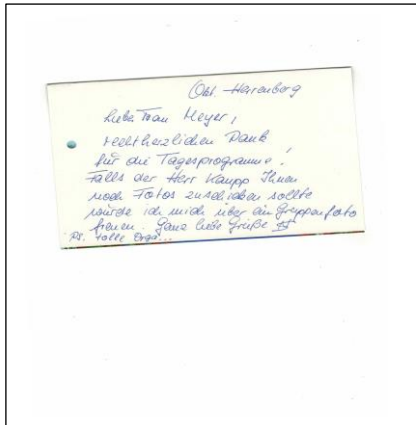 Liebe Frau Meyer,
recht herzlichen Dank
für die Tagesprogramme!
Falls der Herr Kaupp Ihnen
noch Fotos zuschicken sollte
würde ich mich über ein Gruppenfoto
freuen. Ganz liebe Grüße
Ps. tolle Orga...